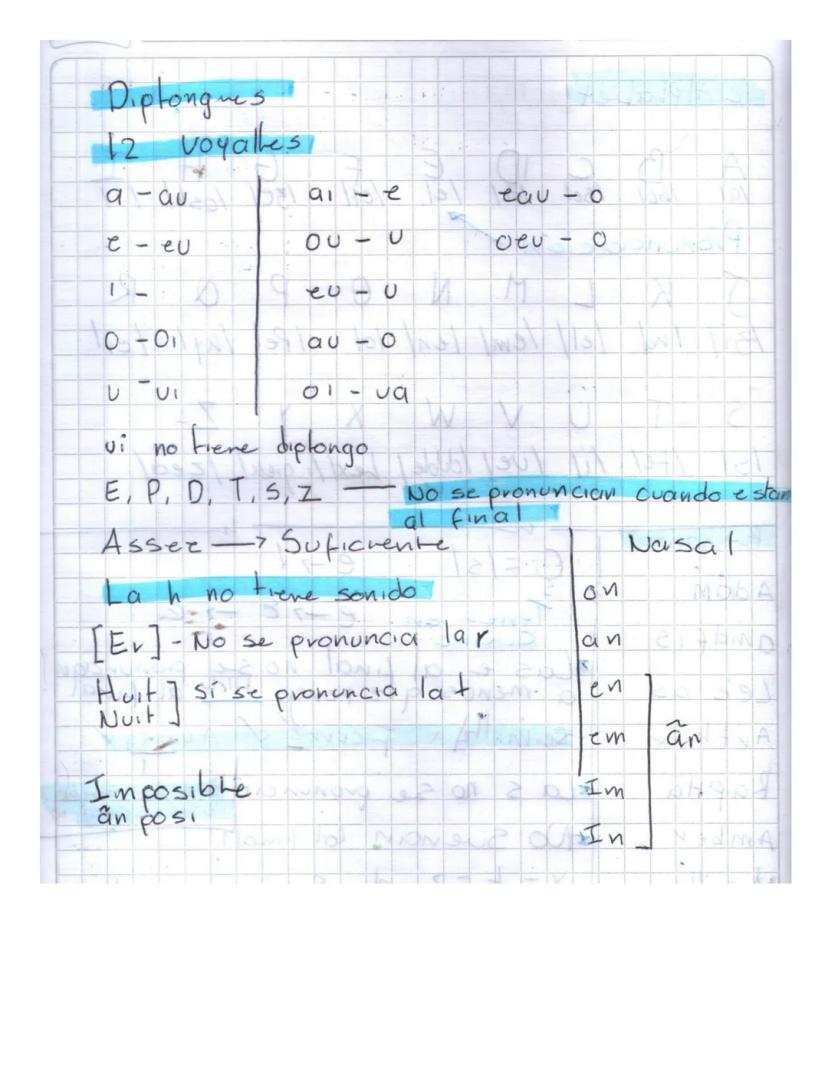 Diptongues
12 voyalles
a - au
e - eu
i -
o - oi
u - ui
ai - e
ou - u
eu - u
au - o
oi - ua
eau - o
oeu - o
ui no tiene diptongo
E, P, D, T, S, Z — No se pronuncian cuando estan
al final
Assez → Suficiente
La h no tiene sonido
[Er] - No se pronuncia la r
Huit ] sí se pronuncia la t
Nuit
Imposible
ãn posi
Nasal
on
an
en
em
ãn
Im
In